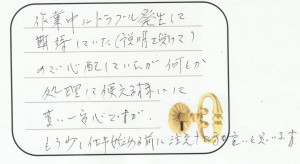 作業中にトラブル発生して
期待していた(説明を受けて)
ので心配していたが何とか
処理に使える様にして
まい一安心ですが、
もう少し仕事始める前に注意した方が良いと思います